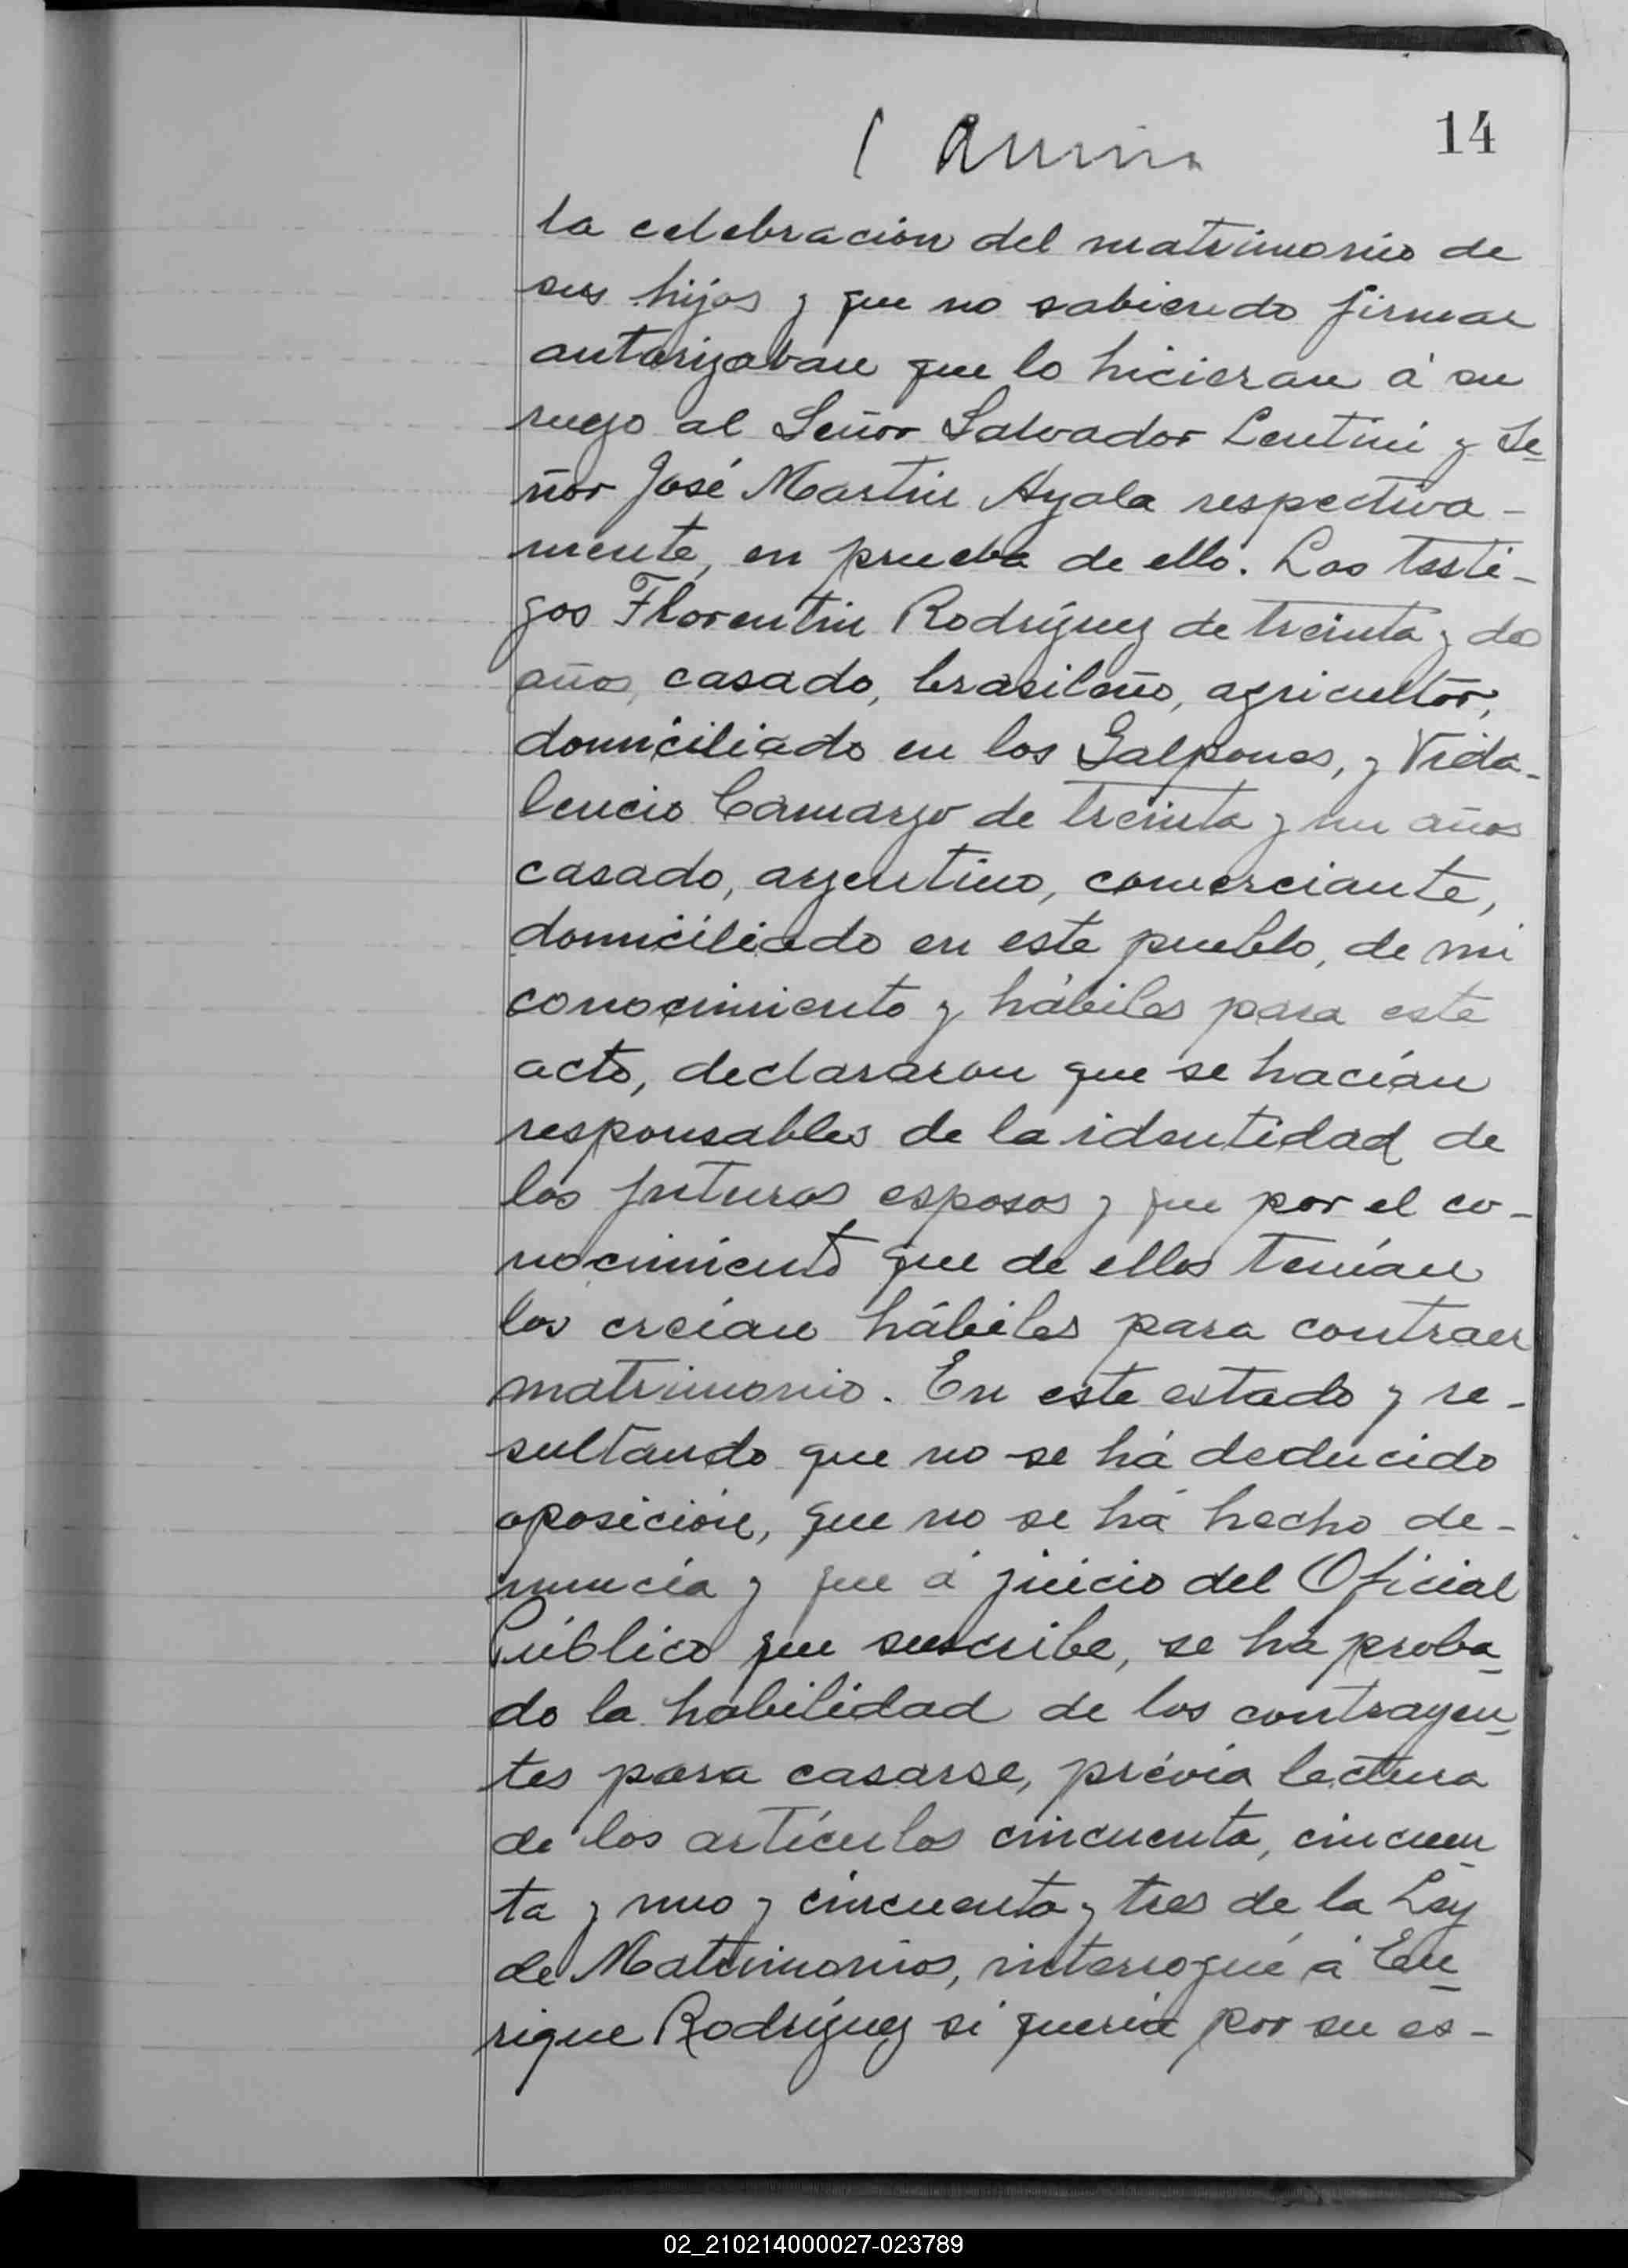 14
la celebración del matrimonio de
sus hijos y que no sabiendo firmar
autorizaban que lo hicieran á su
ruego al Señor Salvador Lentini y Se-
ñor José Martin Ayala respectiva-
mente, en prueba de ello. Los testi-
gos Florentin Rodríguez de treinta y dos
años, casado, brasileño, agricultor,
domiciliado en los Galpones, y Vida-
lencio Camargo de treinta y un años
casado, argentino, comerciante,
domiciliado en este pueblo, de mi
conocimiento y hábiles para este
acto, declararon que se hacían
responsables de la identidad de
los futuros esposos y que por el co-
nocimiento que de ellos tenían
los creían hábiles para contraer
matrimonio. En este estado y re-
sultando que no se há deducido
oposición, que no se há hecho de-
nuncia y que á juicio del Oficial
Público que suscribe, se há proba-
do la habilidad de los contrayen-
tes para casarse, prévia lectura
de los artículos cincuenta, cincuen-
ta y uno y cincuenta y tres de la Ley
de Matrimonios, interrogué á En-
rique Rodríguez si quería por su es-
02_210214000027-023789